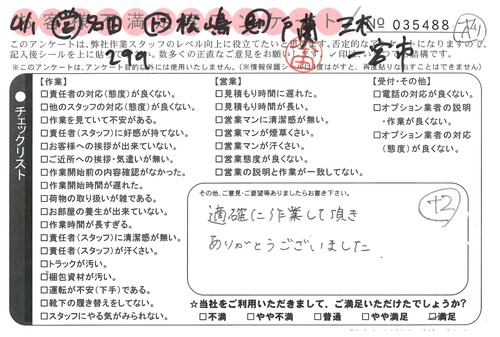 営 石田 松嶋 戸蘭 三木
№ 035488
299
このアンケートは、弊社作業スタッフのレベル向上に役立てたい
記入後シールを上に貼って 数多くの正直なご意見をお願いします
チェックリスト
【作業】
□責任者の対応(態度)が良くない。
□他のスタッフの対応(態度)が良くない。
□作業を見ていて不安がある。
□責任者(スタッフ)に好感が持てない。
□お客様への挨拶が出来ていない。
□ご近所への挨拶・気遣いが無い。
□作業開始前の内容確認がなかった。
□作業開始時間が遅れた。
□荷物の取り扱いが雑である。
□お部屋の養生が出来ていない。
□作業時間が長すぎる。
□責任者(スタッフ)に清潔感が無い。
□責任者(スタッフ)が汗くさい。
□トラックが汚い。
□梱包資材が汚い。
□運転が不安(下手)である。
□靴下の履き替えをしてない。
□スタッフにやる気がみられない。
【営業】
□見積もり時間に遅れた。
□見積もり時間が長い。
□営業マンに清潔感が無い。
□営業マンが煙草くさい。
□営業マンが汗くさい。
□営業態度が良くない。
□営業の説明と作業が一致してない。
【受付・その他】
□電話の対応が良くない。
□オプション業者の説明
・作業が良くない。
□オプション業者の対応
(態度)が良くない。
その他、ご意見・ご要望等ありましたらお書き下さい。
適確に作業して頂き
ありがとうございました
+2
☆当社をご利用いただきまして、ご満足いただけたでしょうか?
□不満 □やや不満 □普通 □やや満足 □満足